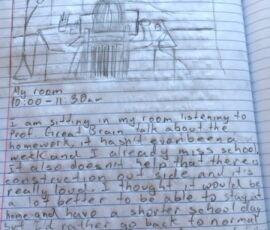 My room
10:00 - 11:30am
I am sitting in my room listening to
Prof. Great Brain talk about the
homework, it hasn't even been a
week and I already miss school
it also doesn't help that there is
construction out side and it's
really loud. I thought it would be
lot better to be able to stay at
home and have a shorter school day
but I'd rather go back to normal